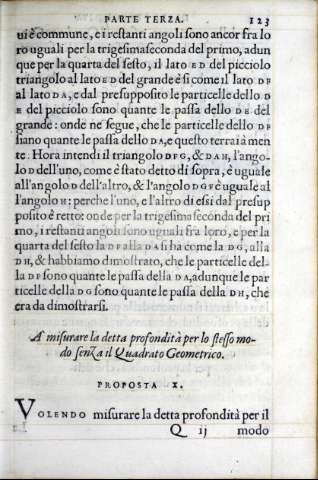 PARTE TERZA. 123
ui è commune, e i restanti angoli sono ancor fra lo
ro uguali per la trigesimaseconda del primo, adun
que per la quarta del sesto, il lato ED del picciolo
triangolo al lato ED del grande è sì come il lato DF
al lato DA, e dal presupposito le particelle dello D
E del picciolo sono quante le passa dello DE del
grande: onde ne segue, che le particelle dello DF
siano quante le passa dello DA, e questo terrai à men
te. Hora intendi il triangolo DFG, & DAH, l'ango-
lo D dell'uno, come è stato detto di sopra, è uguale
all'angolo D dell'altro, & l'angolo DGF è uguale al
l'angolo H; perche l'uno, e l'altro di essi dal presup
posito è retto: onde per la trigesimaseconda del pri
mo, i restanti angoli sono uguali fra loro, e per la
quarta del sesto la DF alla DA si ha come la DG, alla
DH, & habbiamo dimostrato, che le particelle del-
la DF sono quante le passa della DA, adunque le par
ticelle della DG sono quante le passa della DH, che
era da dimostrarsi.
A misurare la detta profondità per lo stesso mo-
do senza il Quadrato Geometrico.
PROPOSTA X.
VOLENDO misurare la detta profondità per il
Q ij modo